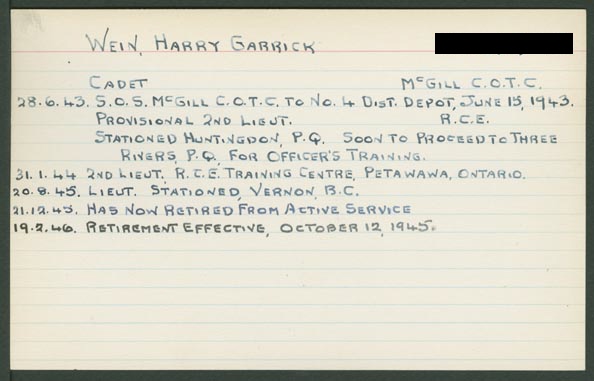 WEIN, HARRY GARRICK
CADET McGILL C.O.T.C.
28.6.43. S.O.S. McGILL C.O.T.C. TO No. 4 DIST. DEPOT, JUNE 15, 1943.
PROVISIONAL 2ND LIEUT. R.C.E.
STATIONED HUNTINGDON, P.Q. SOON TO PROCEED TO THREE
RIVERS, P.Q. FOR OFFICER'S TRAINING.
31.1.44 2ND LIEUT, R.C.E. TRAINING CENTRE, PETAWAWA, ONTARIO.
20.8.45. LIEUT. STATIONED, VERNON, B.C.
21.12.45. HAS NOW RETIRED FROM ACTIVE SERVICE
19.2.46. RETIREMENT EFFECTIVE, OCTOBER 12, 1945.